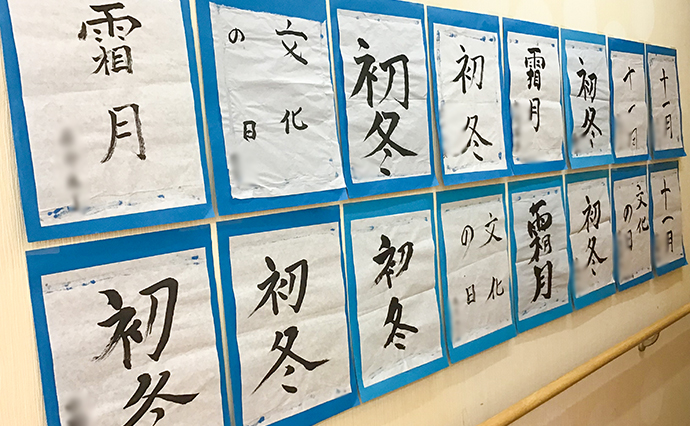 霜月
文化
の日
初冬
初冬
霜月
初冬
十一月
十一月
初冬
初冬
初冬
文化
の日
霜月
初冬
文化
の日
十一月